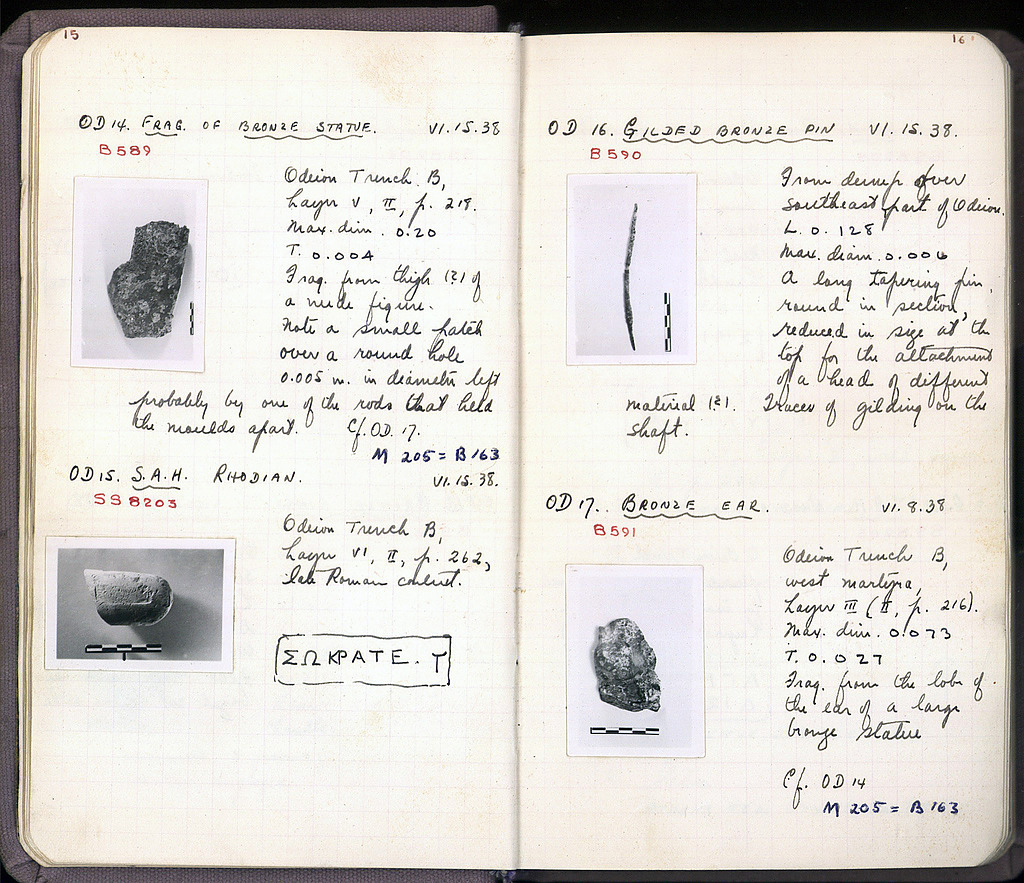 15
OD 14. FRAG. OF BRONZE STATUE. VI.15.38
B 589
Odeion Trench B,
Layer V, II, p. 218.
Max. dim. 0.20
T. 0.004
Frag. from thigh (?) of
a nude figure.
Note a small patch
over a round hole
0.005 m. in diameter left
probably by one of the rods that held
the moulds apart. Cf. OD. 17.
M 205 = B 163
OD 15. S.A.H. RHODIAN. VI.15.38.
SS 8203
Odeion Trench B,
Layer VI, II, p. 262,
late Roman context.
ΣΩΚΡΑΤΕ.Υ
16
OD 16. GILDED BRONZE PIN VI.15.38.
B 590
From dump over
southeast part of Odeion.
L. 0.128
Max. diam. 0.006
A long tapering pin,
round in section,
reduced in size at the
top for the attachment
of a head of different
material (?). Traces of gilding on the
shaft.
OD 17. BRONZE EAR. VI.8.38
B 591
Odeion Trench B,
west martyra,
Layer III (II, p. 216).
Max. dim. 0.073
T. 0.027
Frag. from the lobe of
the ear of a large
bronze statue
Cf. OD 14
M 205 = B 163